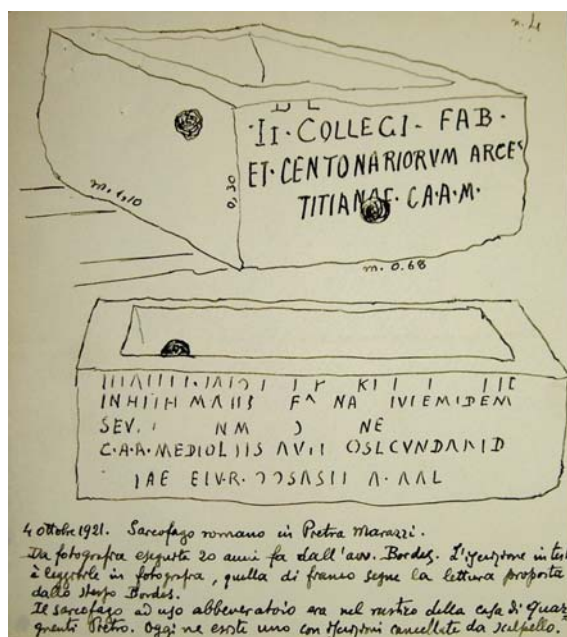 n. 4
D L
II · COLLEGI - FAB ·
ET · CENTONARIORVM ARCE
TITIANAE · C·A·A·M·
m. 1,10
0,30
m. 0.68
INHIIH MAIIS NA IVIEMIDEM
SEV. NM NE
C·A·A·MEDIOLIIS AVII OSLCVNDARID
IAE EIVR· A·AAL
4 ottobre 1921. Sarcofago romano in Pietra Marazzi.
Da fotografia eseguita 20 anni fa dall'avv. Bordes. L'iscrizione in test
è leggibile in fotografia, quella di fianco segue la lettura proposta
dallo stesso Bordes.
Il sarcofago ad uso abbeveratoio era nel rustico della casa di Quar
gnenti Pietro. Oggi ne esiste uno con iscrizioni cancellate da scalpello.